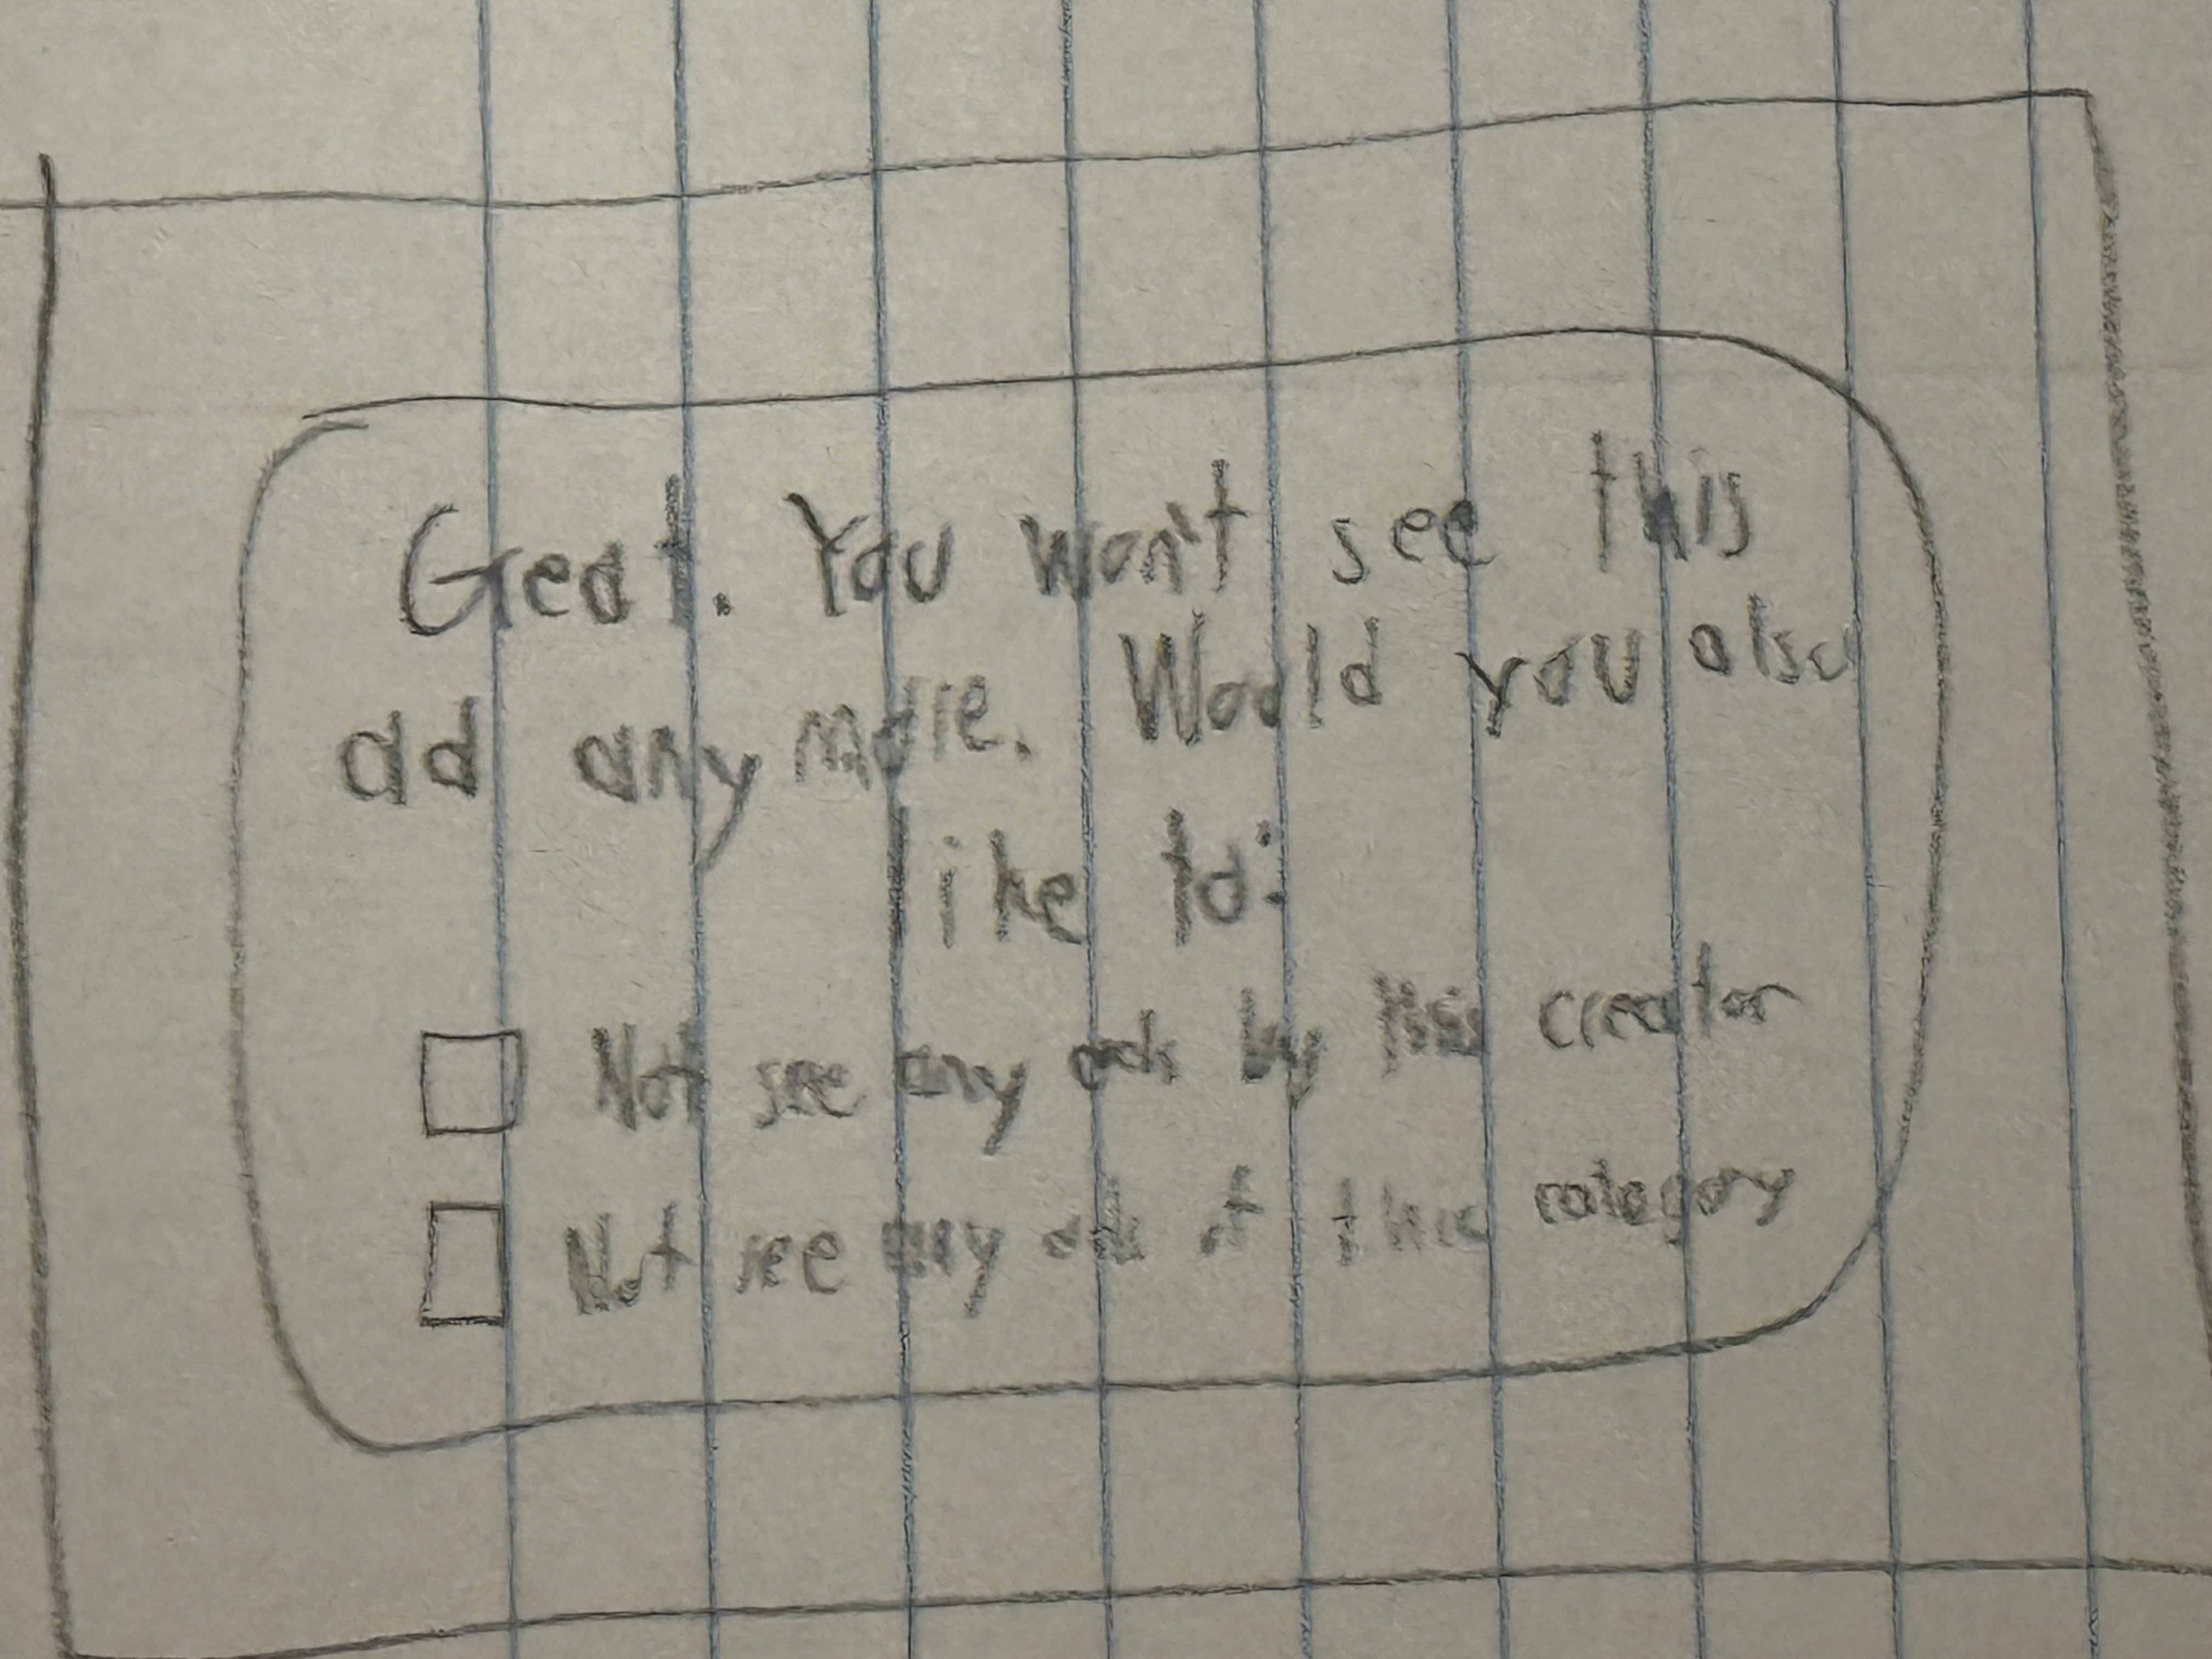 Geat. You won't see this
ad any more. Would you also
like to:
Not see any ads by this creator
Not see any ads of this category